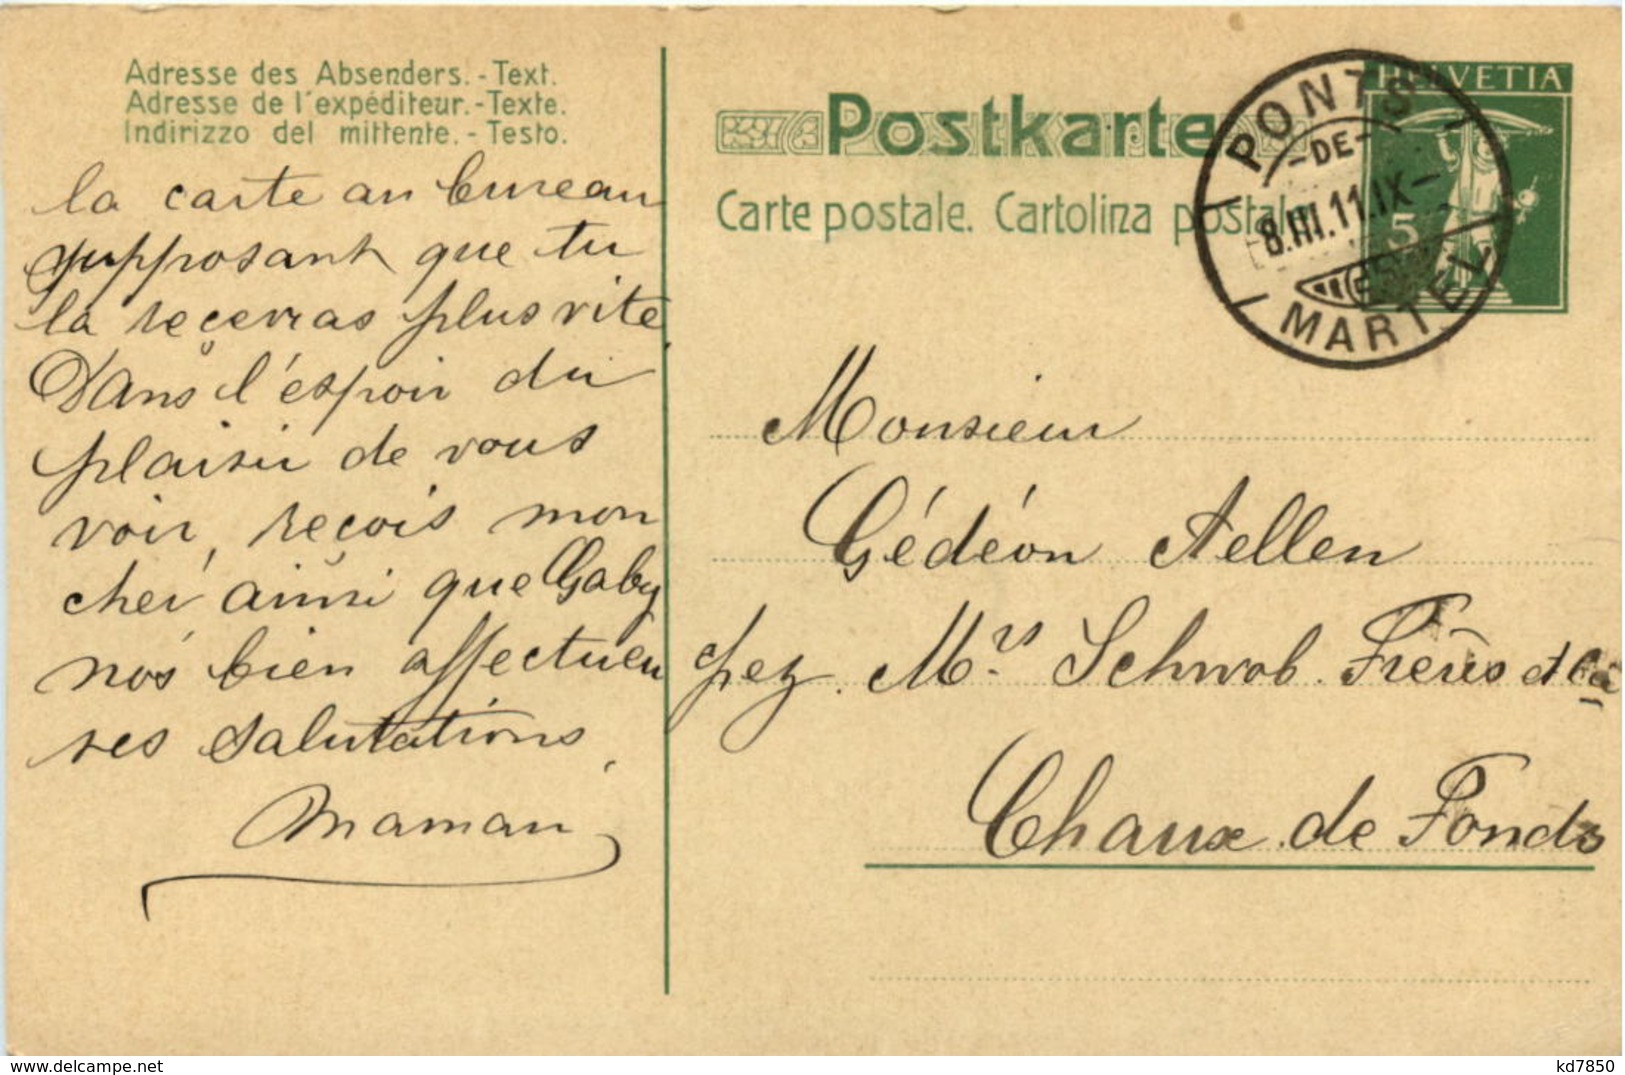 Adresse des Absenders.-Text.
Adresse de l'expéditeur.-Texte.
Indirizzo del mittente.-Testo.
la carte au bureau
supposant que tu
la reçevras plus vite.
Dans l'espoir du
plaisir de vous
voir, reçois mon
cher ainsi que Gaby
nos bien affectueu
ses salutations,
Maman
Postkarte
Carte postale. Cartolina postale.
HELVETIA
5
PONTS
-DE-
8.III.11.IX-
MARTEL
Monsieur
Gédéon Aellen
chez Mrs Schwob Frères et Cie
Chaux de Fonds
www.delcampe.net
kd7850